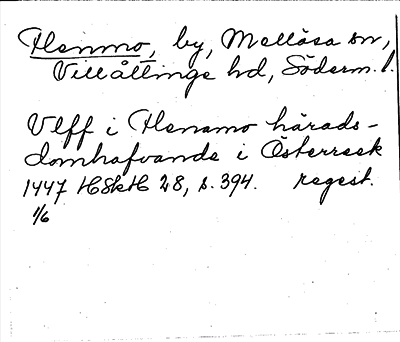 Henmo, by, Mellösa sn,
Villåttinge hd, Söderm. l.
Vlff i Henamo härads-
domhafvande i Österreek
1447 HSkH 28, s. 394. regest.
1/6